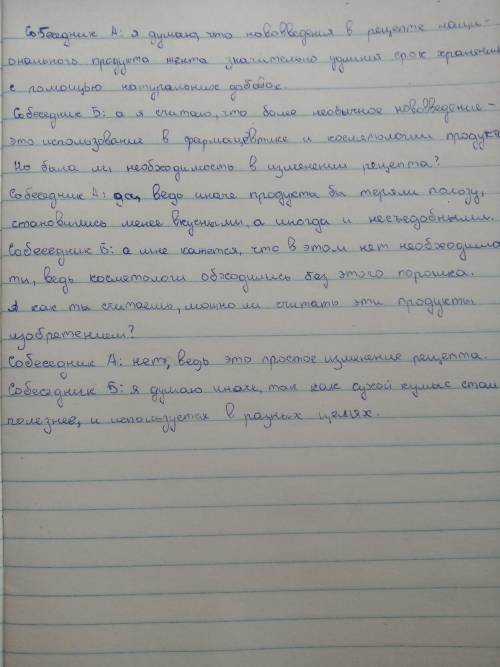 Собеседник А: я думаю, что нововведения в рецепте наци-
онального продукта жента значительно удлинил срок хранения
с помощью натуральных добавок.
Собеседник Б: а я считаю, что более необычное нововведение -
это использование в фармацевтике и косметологии продукта.
Но была ли необходимость в изменении рецепта?
Собеседник А: да, ведь иначе продукта бы теряли пользу,
становились менее вкусными, а иногда и несъедобными.
Собеседник Б: а мне кажется, что в этом нет необходимос
ти, ведь косметологи обходились без этого порошка.
А как ты считаешь, можно ли считать эти продукты
изобретением?
Собеседник А: нет, ведь это простое изменение рецепта.
Собеседник Б: я думаю иначе, так как сухой кумыс стал
полезнее, и используется в разных целях.